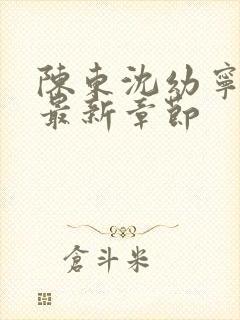 陳東沈幼寧
最新章節
倉斗米